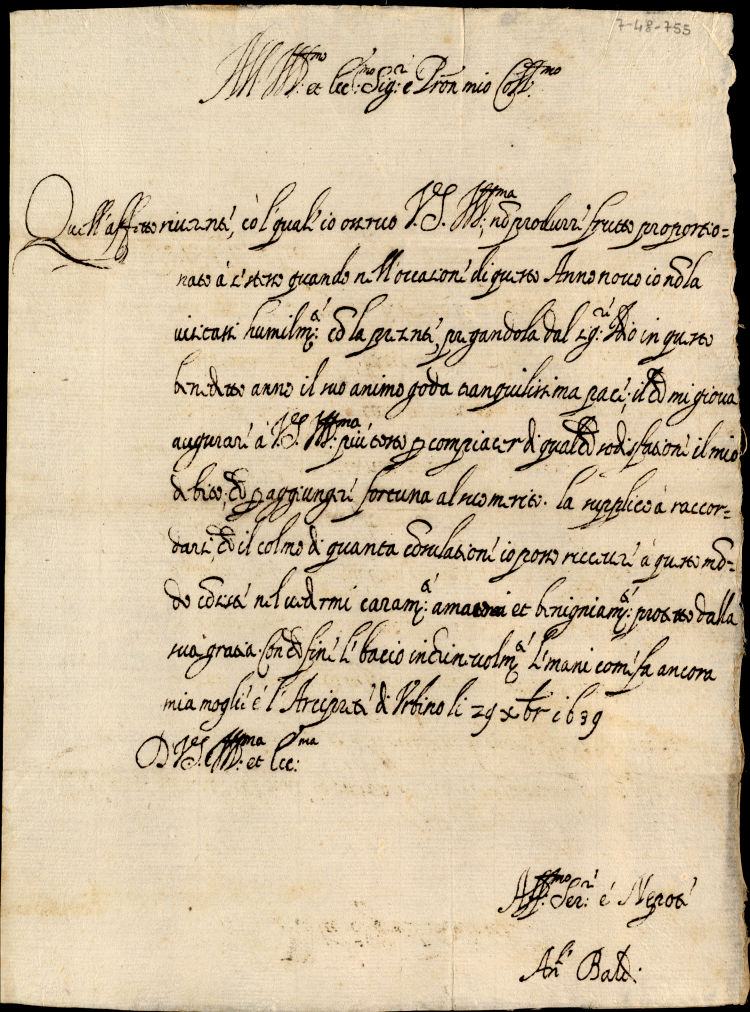 7-48-755
All' Ill.mo et Ecc.mo Sig.r e Pron mio Coll.mo
Quell'affetto riverente, cò 'l quale io osservo V.S. Ill.ma; nõ produrrè frutto proportio=
nato à s'stesso quando nell'occasione di questo Anno novo io nõ la
visitassi humilm.te cõ la presente, pregandola dal sig.re Idio in questo
benedetto anno il suo animo goda tranquilissima pace; il chè mi giova
augurare à V.S. Ill.ma più tosto p compiacer di qualchè sodisfatione il mio
debito; chè p aggiungere fortuna al suo merito. la supplico à raccor=
darsi, chè il colmo di quanta cõsulatione io posso ricevere à questo mõ=
do cõsiste nel vedermi caram.te amato et benigniam.te protetto dalla
sua gratia. Con chè fine le bacio inchinevolm.te le mani come fa ancora
mia moglie è l'Arciprete di Urbino li 29 Xbr 1639
D V.S. Ill.ma et Ecc.ma
Aff.mo Ser.re è Nepote
An.l Bald: